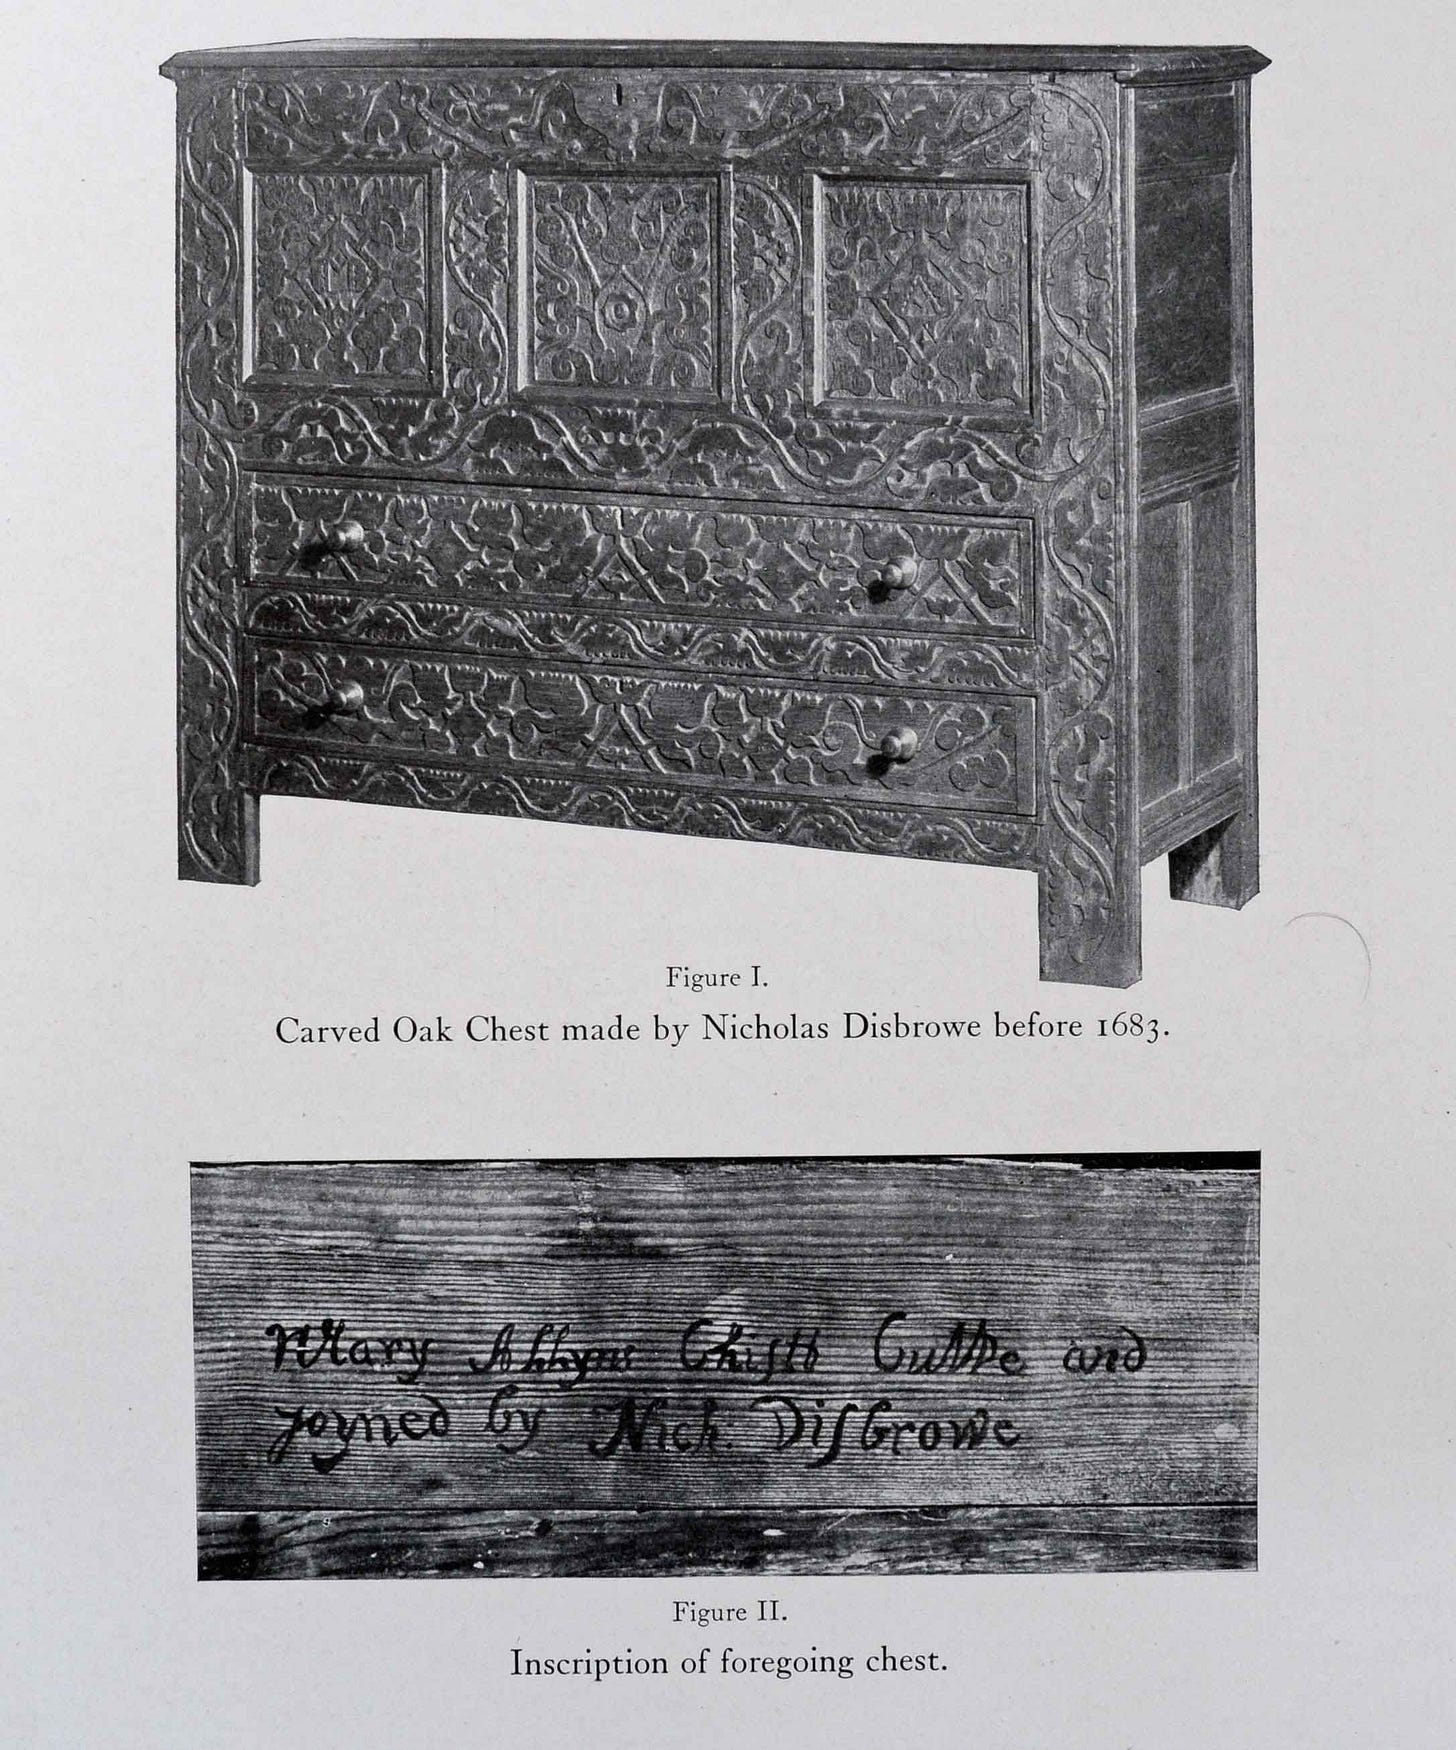 M A
Figure I.
Carved Oak Chest made by Nicholas Disbrowe before 1683.
Mary Allyns Chistt Cutte and
joyned by Nich: Disbrowe
Figure II.
Inscription of foregoing chest.